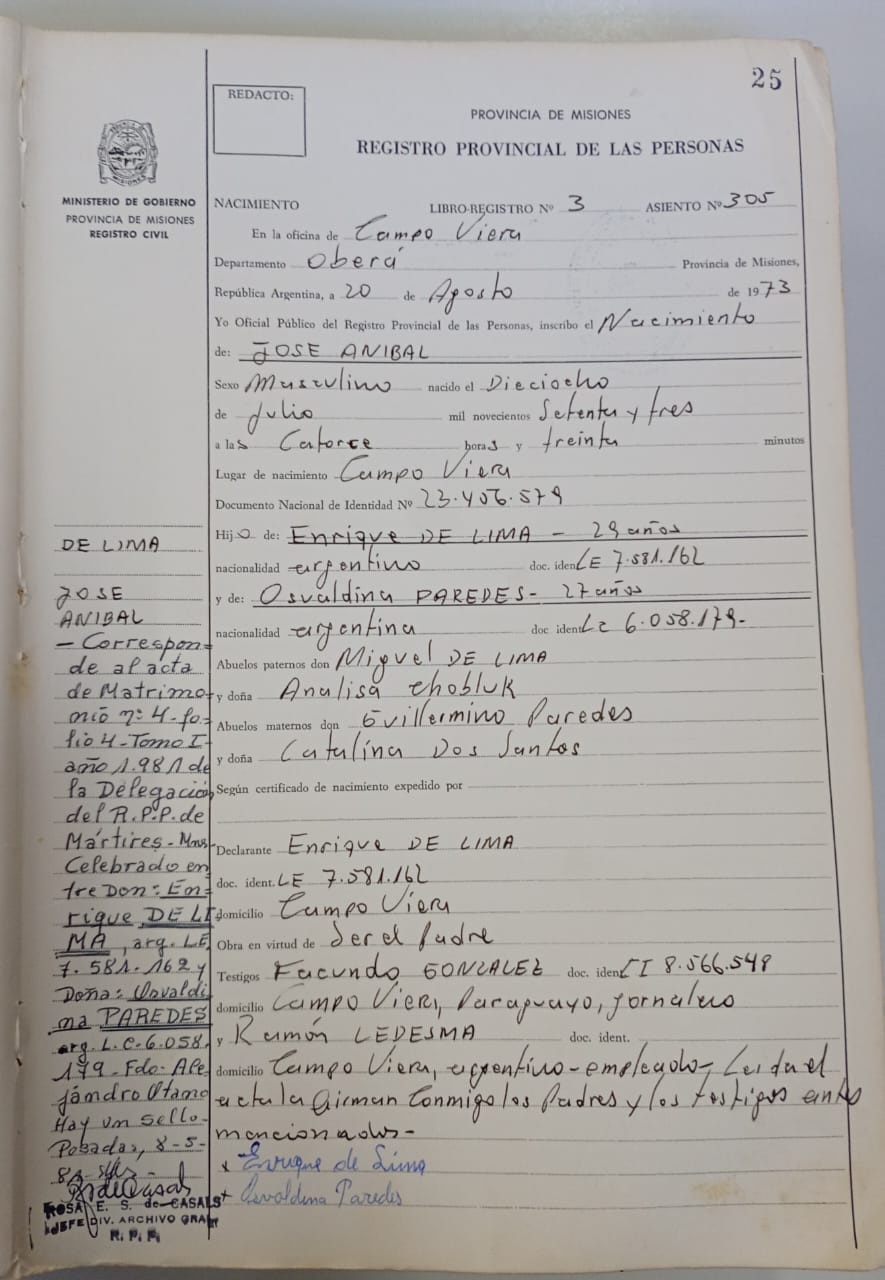 25
REDACTO:
PROVINCIA DE MISIONES
REGISTRO PROVINCIAL DE LAS PERSONAS
MINISTERIO DE GOBIERNO
PROVINCIA DE MISIONES
REGISTRO CIVIL
NACIMIENTO LIBRO-REGISTRO Nº 3 ASIENTO Nº 305
En la oficina de Campo Viera
Departamento Oberá Provincia de Misiones,
República Argentina, a 20 de Agosto de 1973
Yo Oficial Público del Registro Provincial de las Personas, inscribo el Nacimiento
de: JOSE ANIBAL
Sexo Masculino nacido el Dieciocho
de Julio mil novecientos Setenta y tres
a las Catorce horas y treinta minutos
Lugar de nacimiento Campo Viera
Documento Nacional de Identidad Nº 23.406.579
Hijo de: Enrique DE LIMA - 29 años
nacionalidad argentino doc. iden LE 7.581.162
y de: Osvaldina PAREDES - 27 años
nacionalidad argentina doc ident Lc 6.058.179-
Abuelos paternos don Miguel DE LIMA
y doña Analisa Chobluk
Abuelos maternos don Guillermino Paredes
y doña Catalina Dos Santos
Según certificado de nacimiento expedido por
Declarante Enrique DE LIMA
doc. ident. LE 7.581.162
domicilio Campo Viera
Obra en virtud de Ser el Padre
Testigos Facundo GONZALEZ doc. iden CI 8.566.548
domicilio Campo Viera, Paraguayo, jornalero
y Ramón LEDESMA doc. ident.
domicilio Campo Viera, argentino - empleado - Leida el
acta la firman conmigo los Padres y los testigos antes
mencionados-
x Enrique de Lima
+ Osvaldina Paredes
DE LIMA
JOSE
ANIBAL
- Correspon=
de al acta
de Matrimo-
nio nº 4 - fo-
lio 4 - Tomo I-
año 1.981 de
la Delegación
del R.P.P. de
Mártires - Mns-
Celebrado en
tre Don: En=
rique DE LI
MA, arg. LE.
7.581.162 y
Doña: Osvaldi
na PAREDES
arg. L.C. 6.058.
179 - Fdo. Ale
jandro Otano
Hay un sello-
Posadas, 8-5-
81-
ROSA E. S. de CASALS
JEFE DIV. ARCHIVO GRAL
R. P. P.